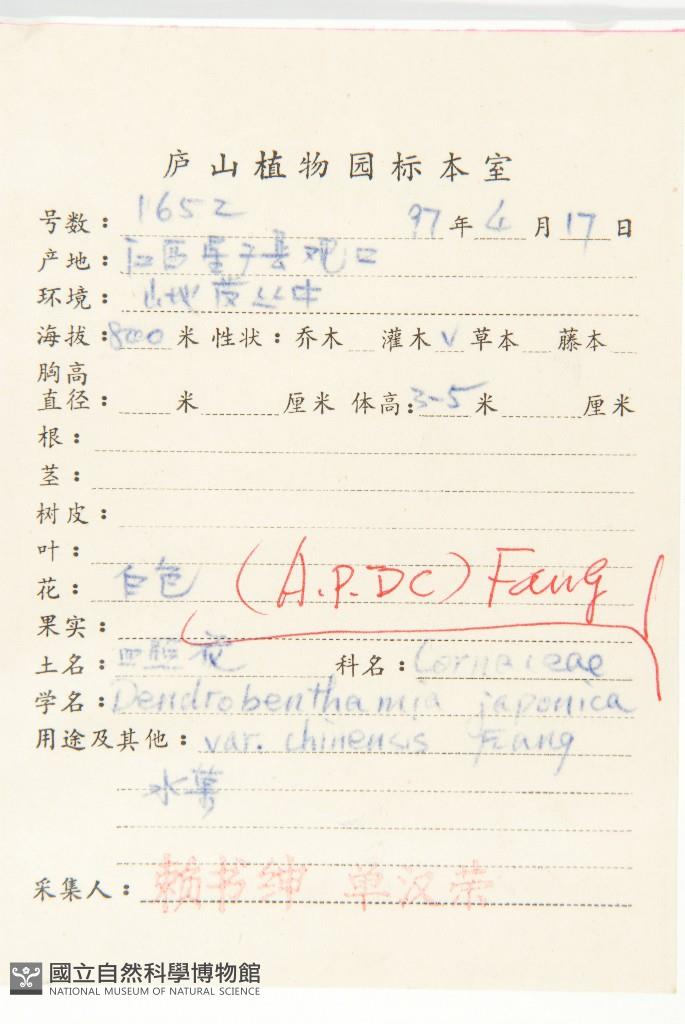 庐山植物园标本室
号数: 1652 97年4月17日
产地: 江西星子县观口
环境: 山地灌丛中
海拔: 800米 性状: 乔木 灌木 v 草本 藤本
胸高
直径: 米 厘米 体高: 3-5米 厘米
根:
茎:
树皮:
叶:
花: 白色 (A.P.DC) Fang
果实:
土名: 四照花 科名: Cornaceae
学名: Dendrobenthamia japonica
用途及其他: var. chinensis Fang
水菓
采集人: 赖书绅 单汉荣
國立自然科學博物館
NATIONAL MUSEUM OF NATURAL SCIENCE